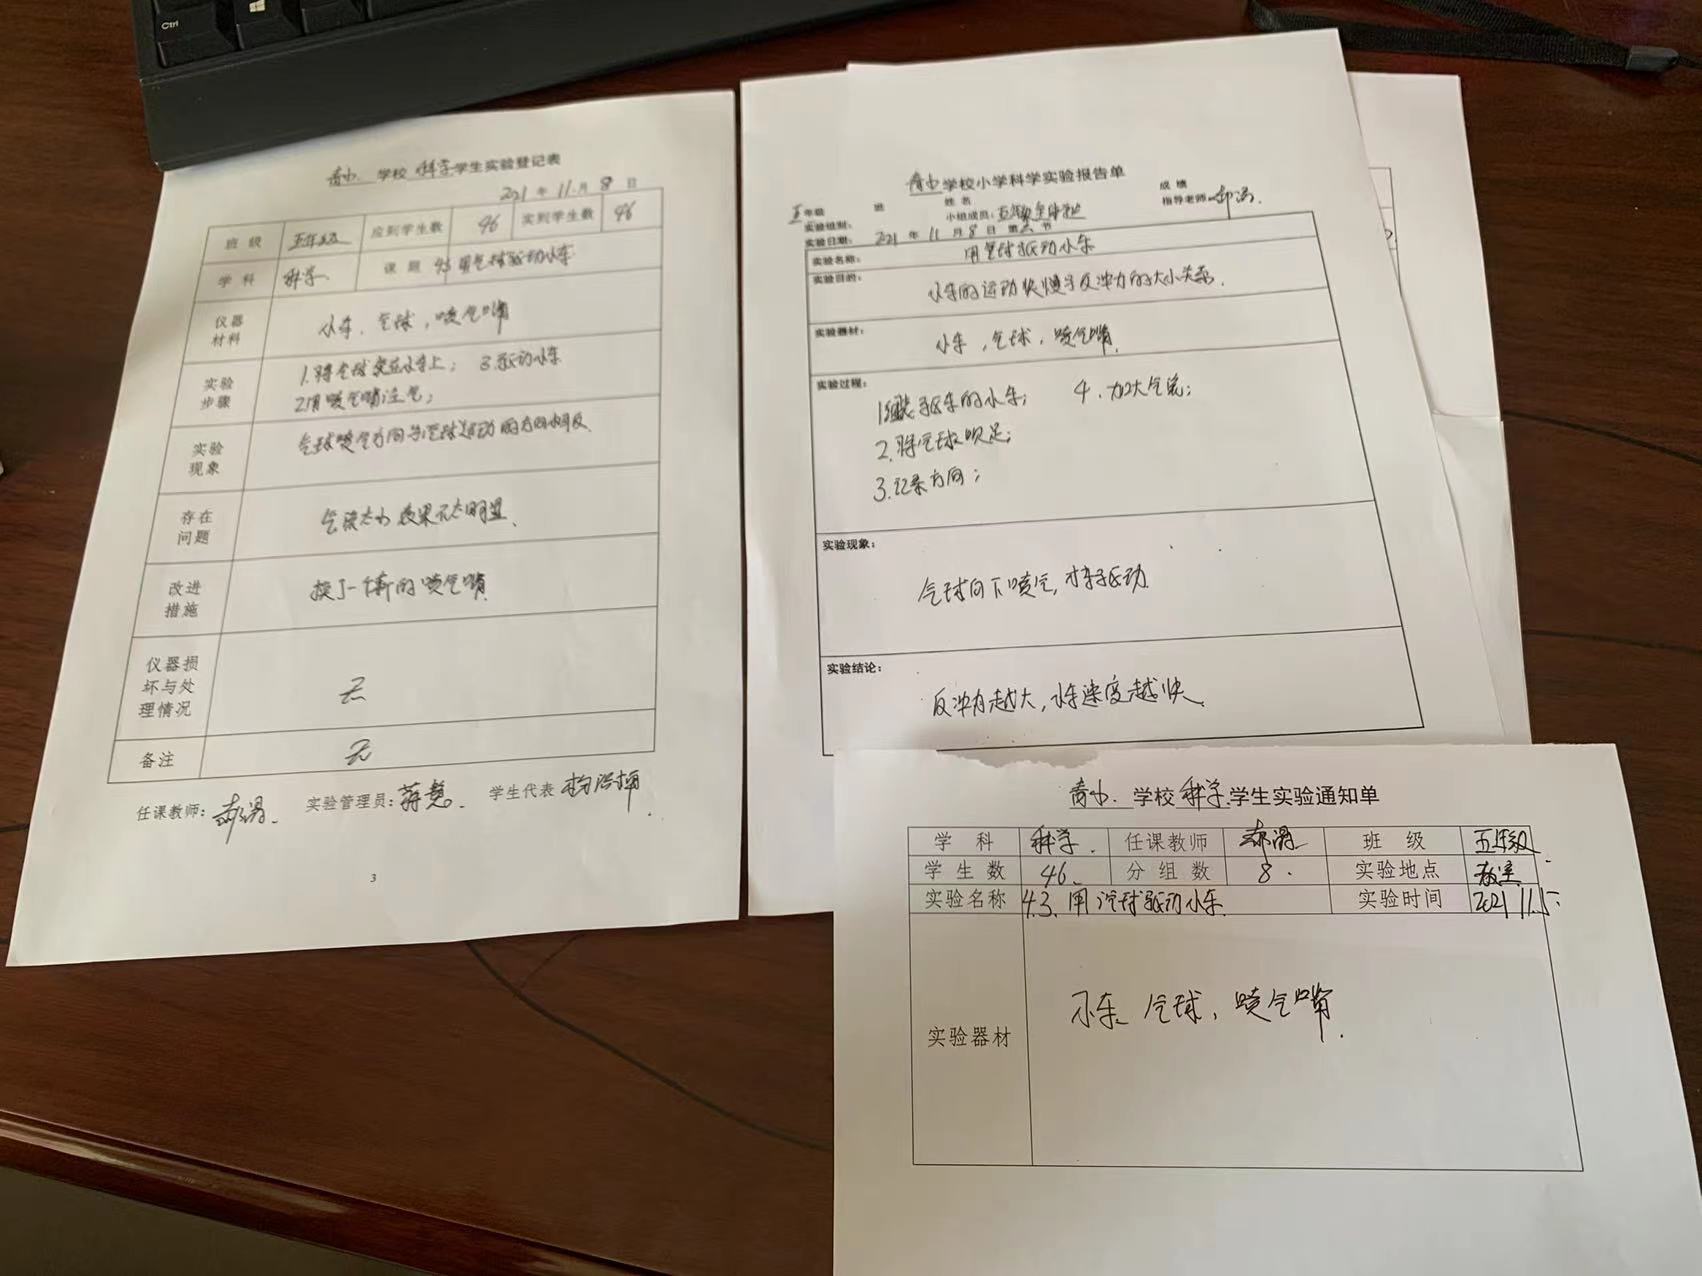 Ctrl
学校 科学 学生实验登记表
2021 年 11 月 8 日
班 级 五年级 应到学生数 46 实到学生数 46
学 科 科学. 课 题 4.3 用气球驱动小车
仪器材料 小车、气球，喷气嘴
实验步骤 1.将气球安在小车上； 3.驱动小车
2.用喷气嘴注气；
实验现象 气球喷气方向与汽球运动的方向相反.
存在问题 气流太小效果不太明显.
改进措施 换了一个新的喷气嘴
仪器损坏与处理情况 无
备注 无
任课教师： 实验管理员： 学生代表
3
学校小学科学实验报告单
五年级 班 姓名 成绩
实验组别： 小组成员：五年级全体学生 指导老师
实验日期： 2021 年 11 月 8 日 第 节
实验名称： 用气球驱动小车
实验目的： 小车的运动快慢与反冲力的大小关系.
实验器材： 小车，气球，喷气嘴.
实验过程： 1.组装 的小车； 4.加大气流；
2.将气球吹足；
3.记录方向；
实验现象： 气球向下喷气，小车驱动.
实验结论： 反冲力越大，小车速度越快.
学校 科学 学生实验通知单
学 科 科学. 任课教师 班 级 五年级
学 生 数 46. 分 组 数 8. 实验地点 教室
实验名称 4.3.用汽球驱动小车. 实验时间 2021 11.5
实验器材 小车、气球，喷气嘴.